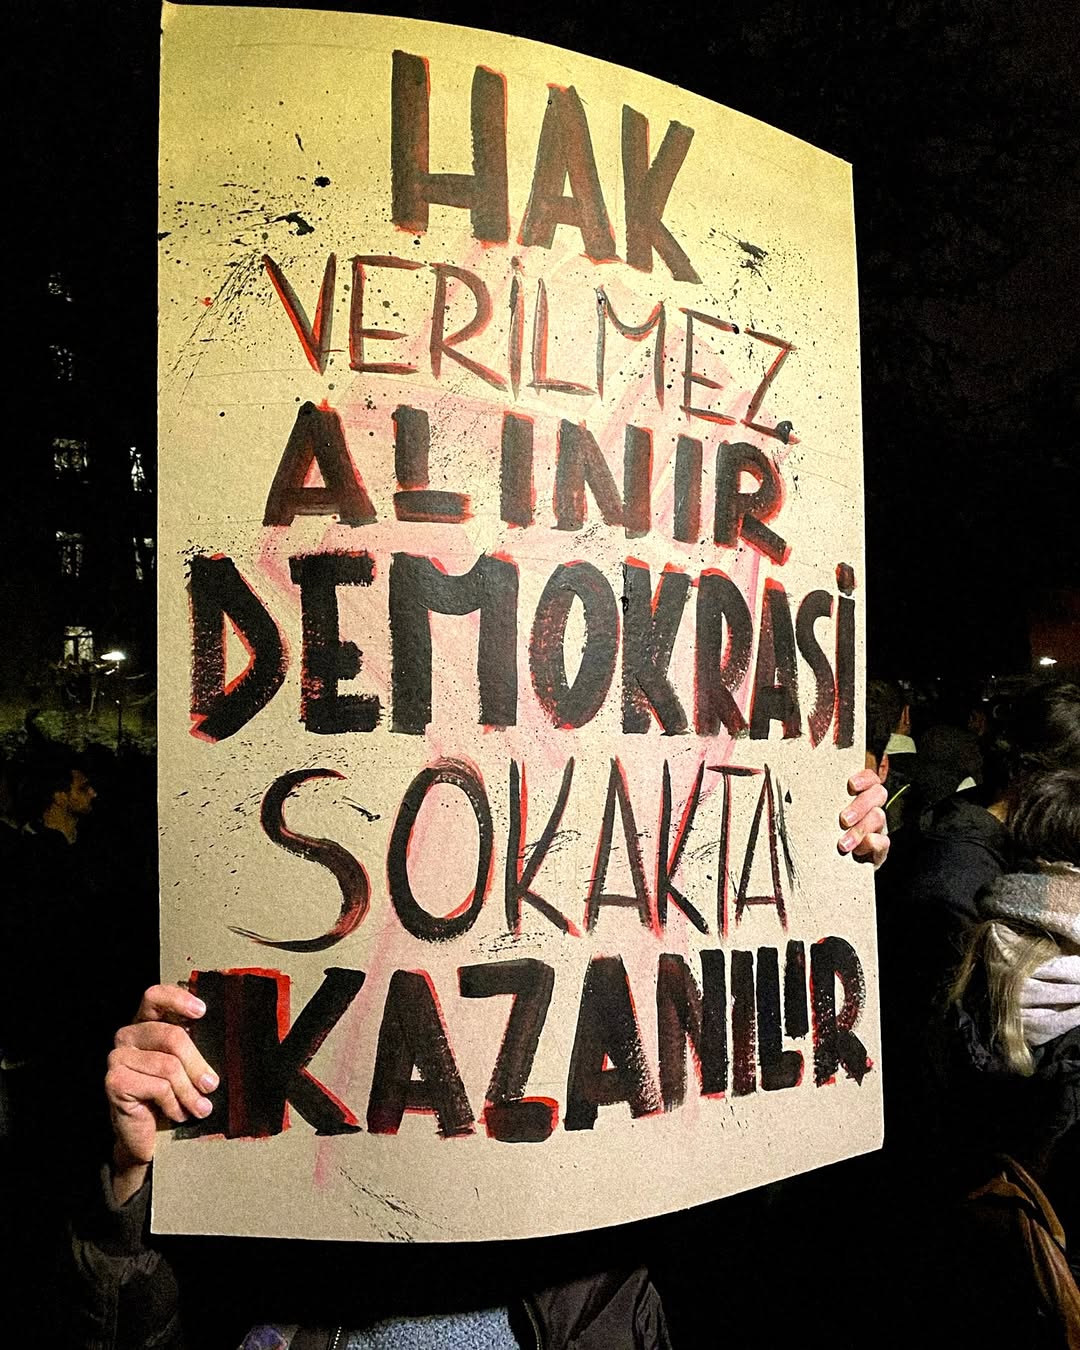 HAK
VERİLMEZ
ALINIR
DEMOKRASİ
SOKAKTA
KAZANILIR